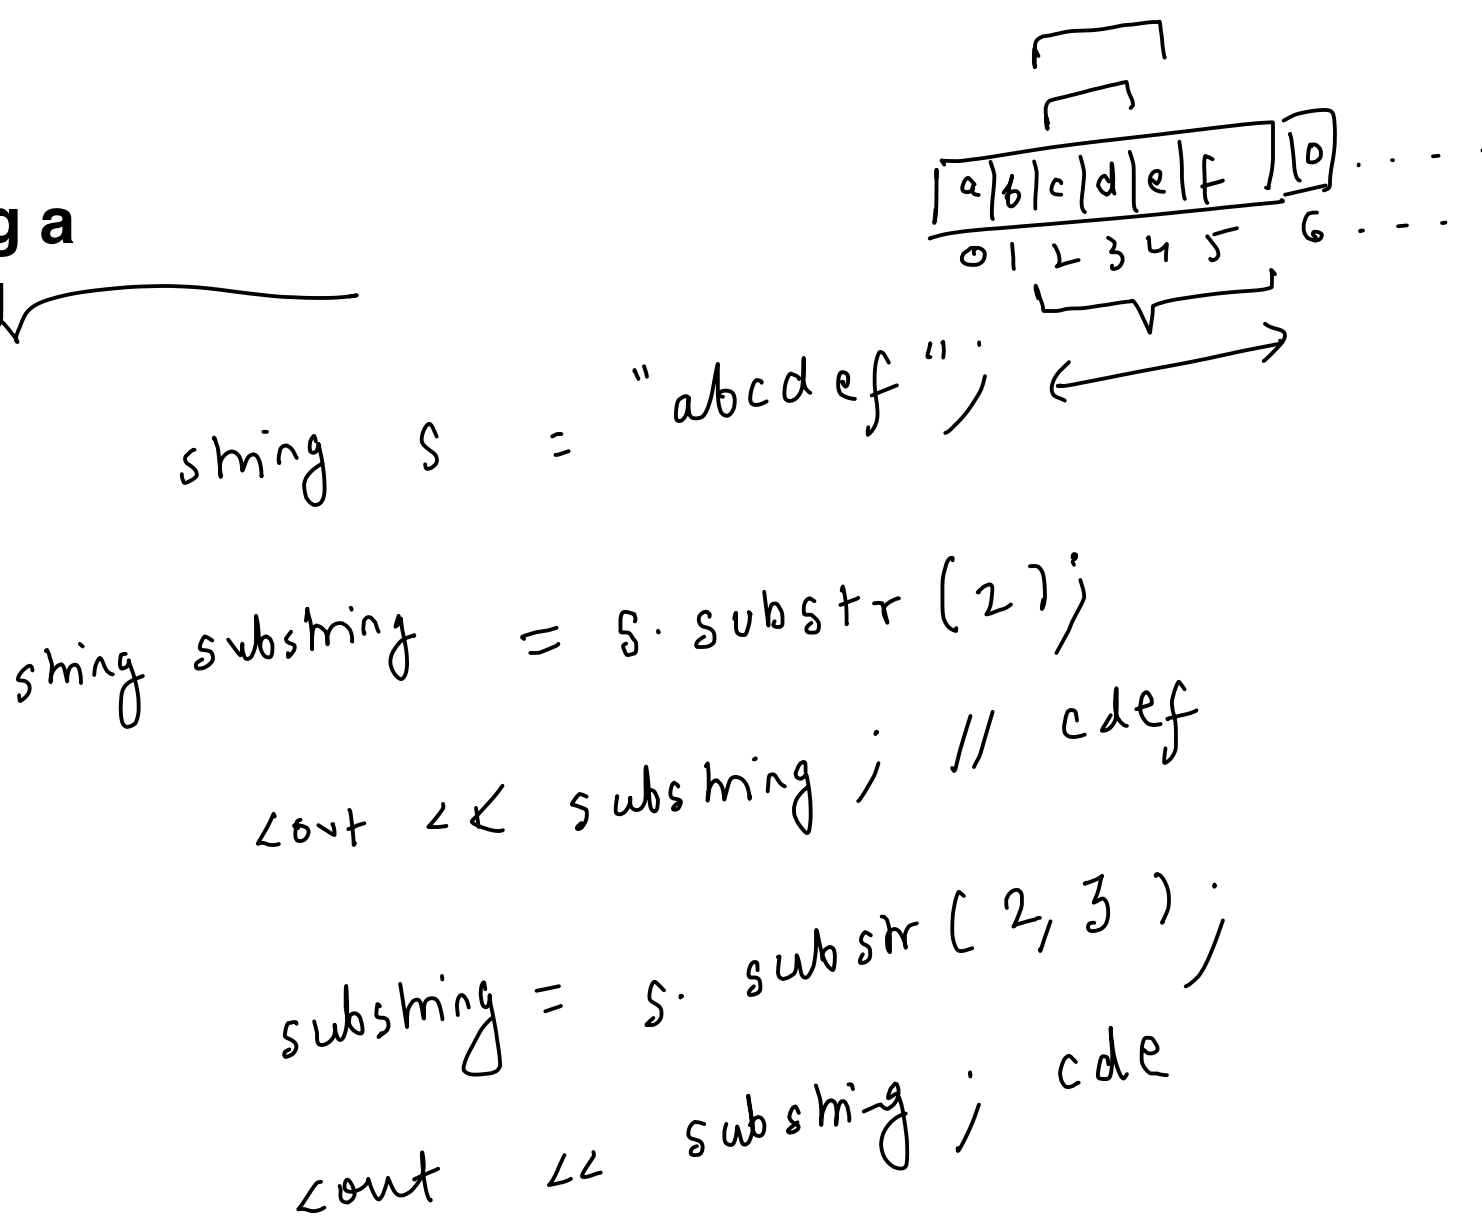 g a
a b c d e f \0 . . . .
0 1 2 3 4 5 6 . - - .
string s = "abcdef";
string substring = s.substr(2);
cout << substring; // cdef
substring = s.substr(2,3);
cout << substring; cde